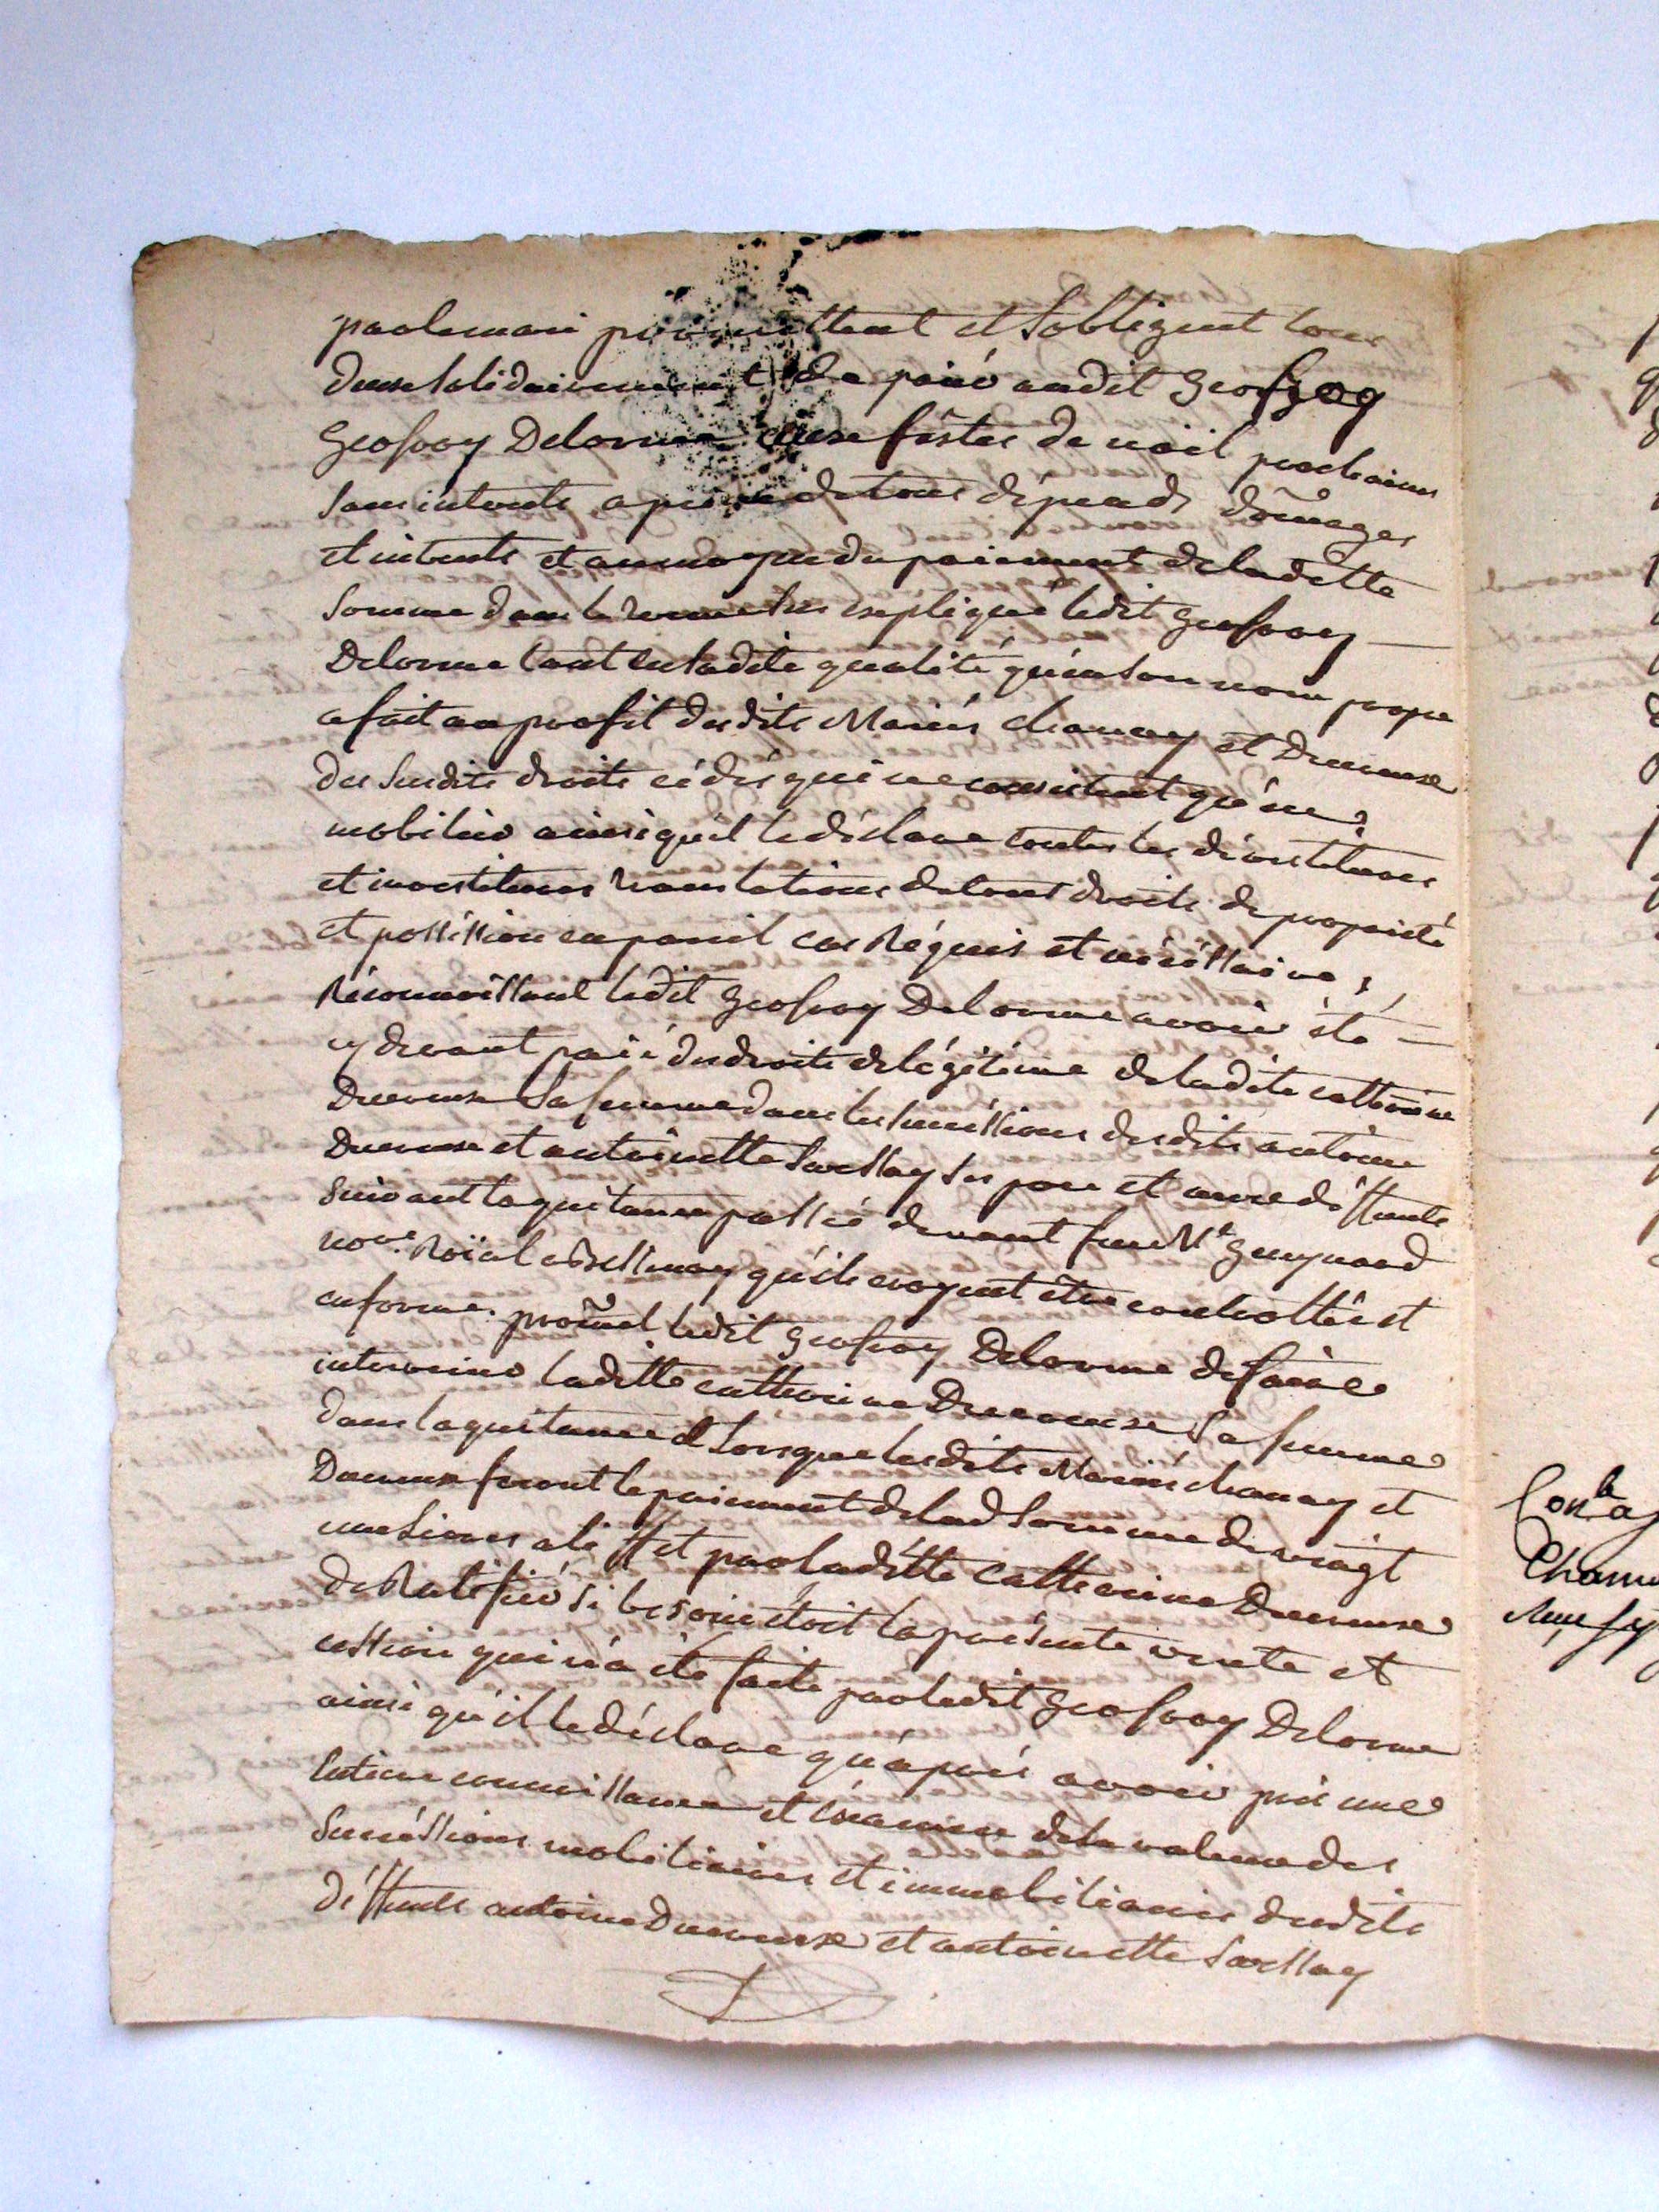 par le mari promettent et s'obligent tous
deux solidairement de paier audit Geofroy
Geofroy Delorme aux fêtes de noël prochaines
sans interets a peine de tous dépends domages
et interets et au moyen du paiement de la ditte
somme dans le terme sus expliqué ledit Geofroy
Delorme tant en sadite qualité qu'en son nom propre
a fait au profit desdits Mariés chanay et Ducreux
des susdits droits cédés qui ne consistent qu'en
mobilier ainsi qu'il le déclare toutes les dévestitures
et investitures translations de tous droits de propriété
et possession en pareil cas Réquis et nécéssaires,
Réconnoissant ledit Geofroy Delorme avoir été
cy devant paié des droits de légitime de ladite catterine
Ducreux sa femme dans les successions desdits antoine
Ducreux et antoinette sarssay ses pere et mere déffunts
suivant la quitance passée devant feu Me Guynand
nore Roïal a Bessenay qu'ils croyent etre controllée et
en forme. promet ledit Geofroy Delorme de faire
intervenir laditte catterine Ducreux sa femme
dans la quitance et lorsque lesdits Mariés chanay et
Ducreux feront le paiement de lad somme de vingt
une livres a l'effet par laditte Catterine Ducreux
de Ratifier si besoin étoit la présente vente et
cession qui n'a été faite par ledit Geofroy Delorme
ainsi qu'il le déclare qu'après avoir pris une
entiere connoissance et examen de la valeur des
successions mobiliaires et immobiliaires desdits
déffunts antoine Ducreux et antoinette sarssay